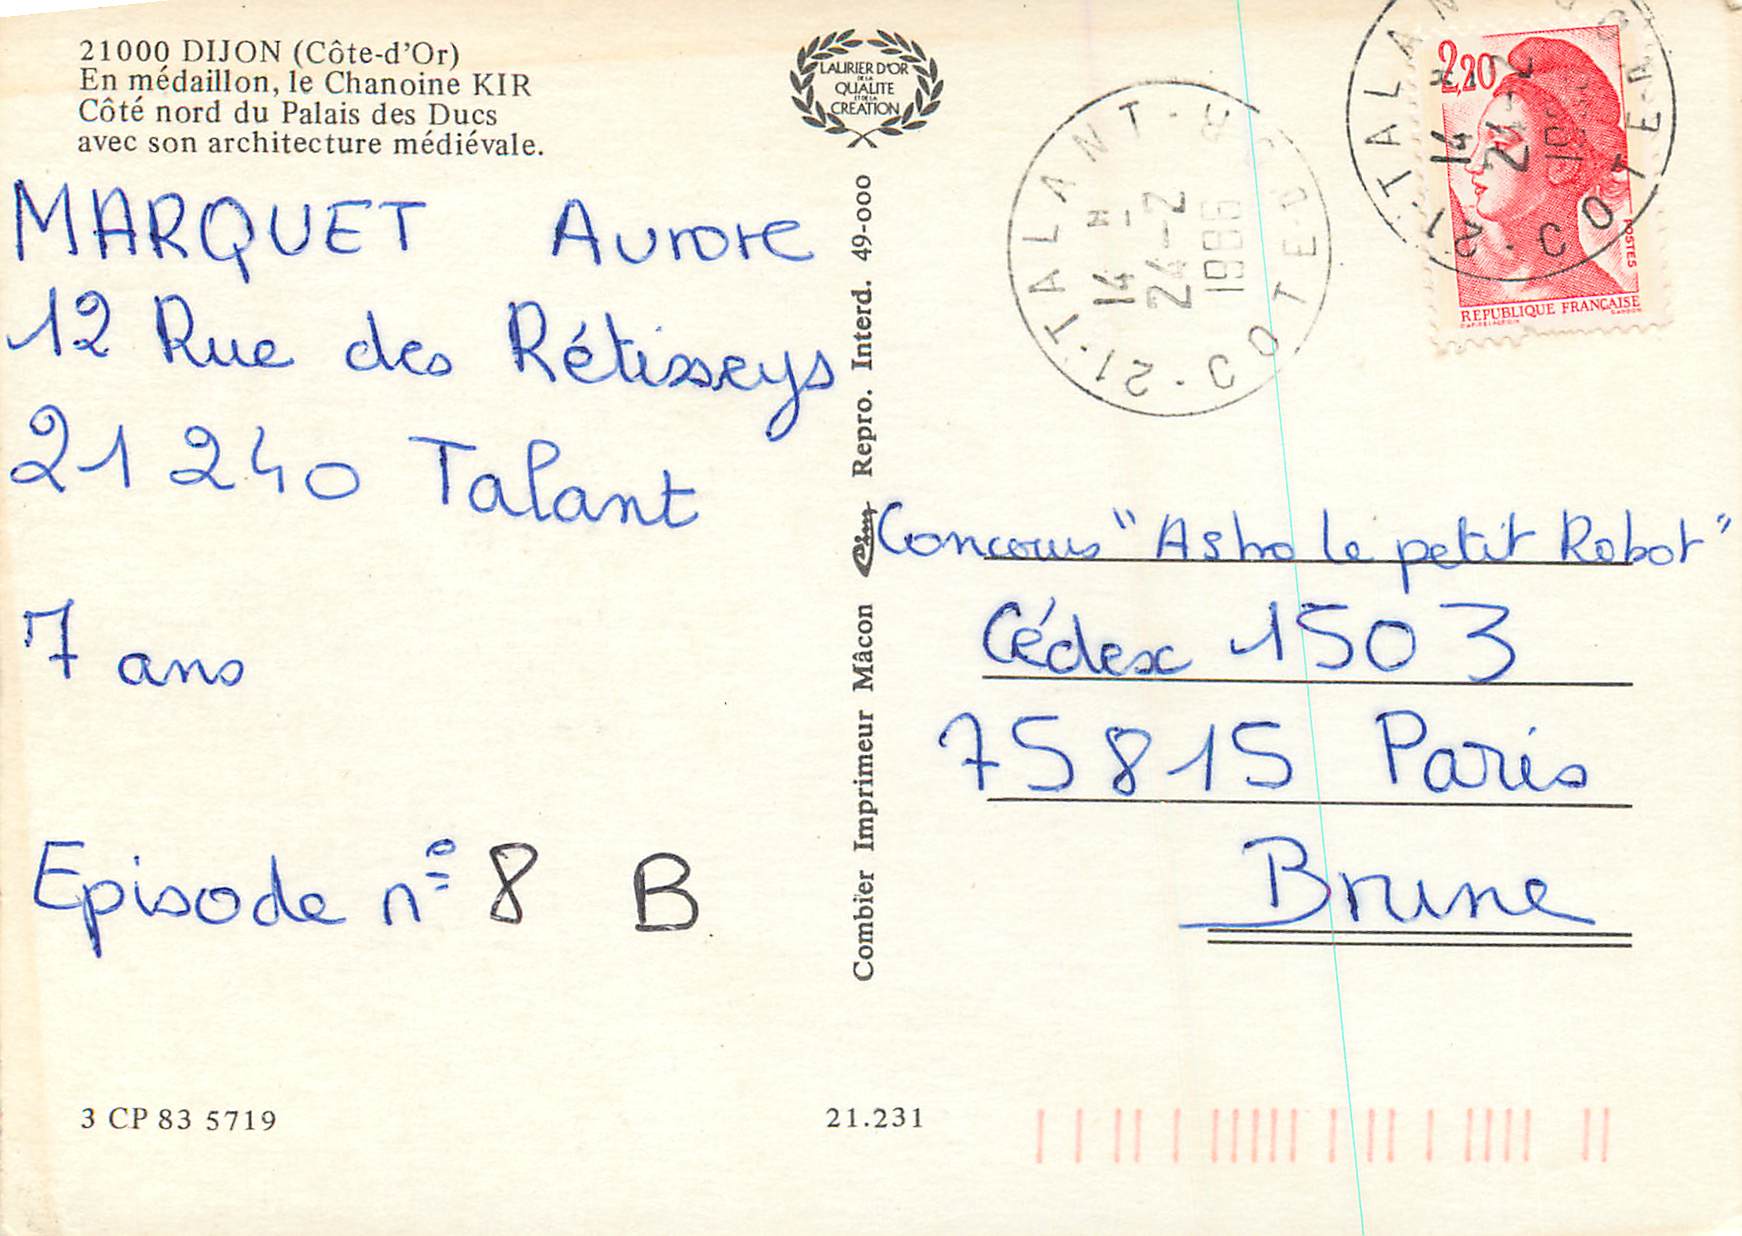 21000 DIJON (Côte-d'Or)
En médaillon, le Chanoine KIR
Côté nord du Palais des Ducs
avec son architecture médiévale.
MARQUET Aurore
12 Rue des Rétisseys
21 240 Talant
7 ans
Episode n° 8 B
3 CP 83 5719
LAURIER D'OR
DE LA
QUALITE
ET DE LA
CREATION
Combier Imprimeur Mâcon Cim Repro. Interd. 49-000
21.231
21-TALANT
14 H
24-2
1986
COTE-D'OR
2,20
POSTES
REPUBLIQUE FRANÇAISE
21-TALANT
14 H
24-2
COTE-D
Concours "Astro le petit Robot"
Cédex 1503
75815 Paris
Brune